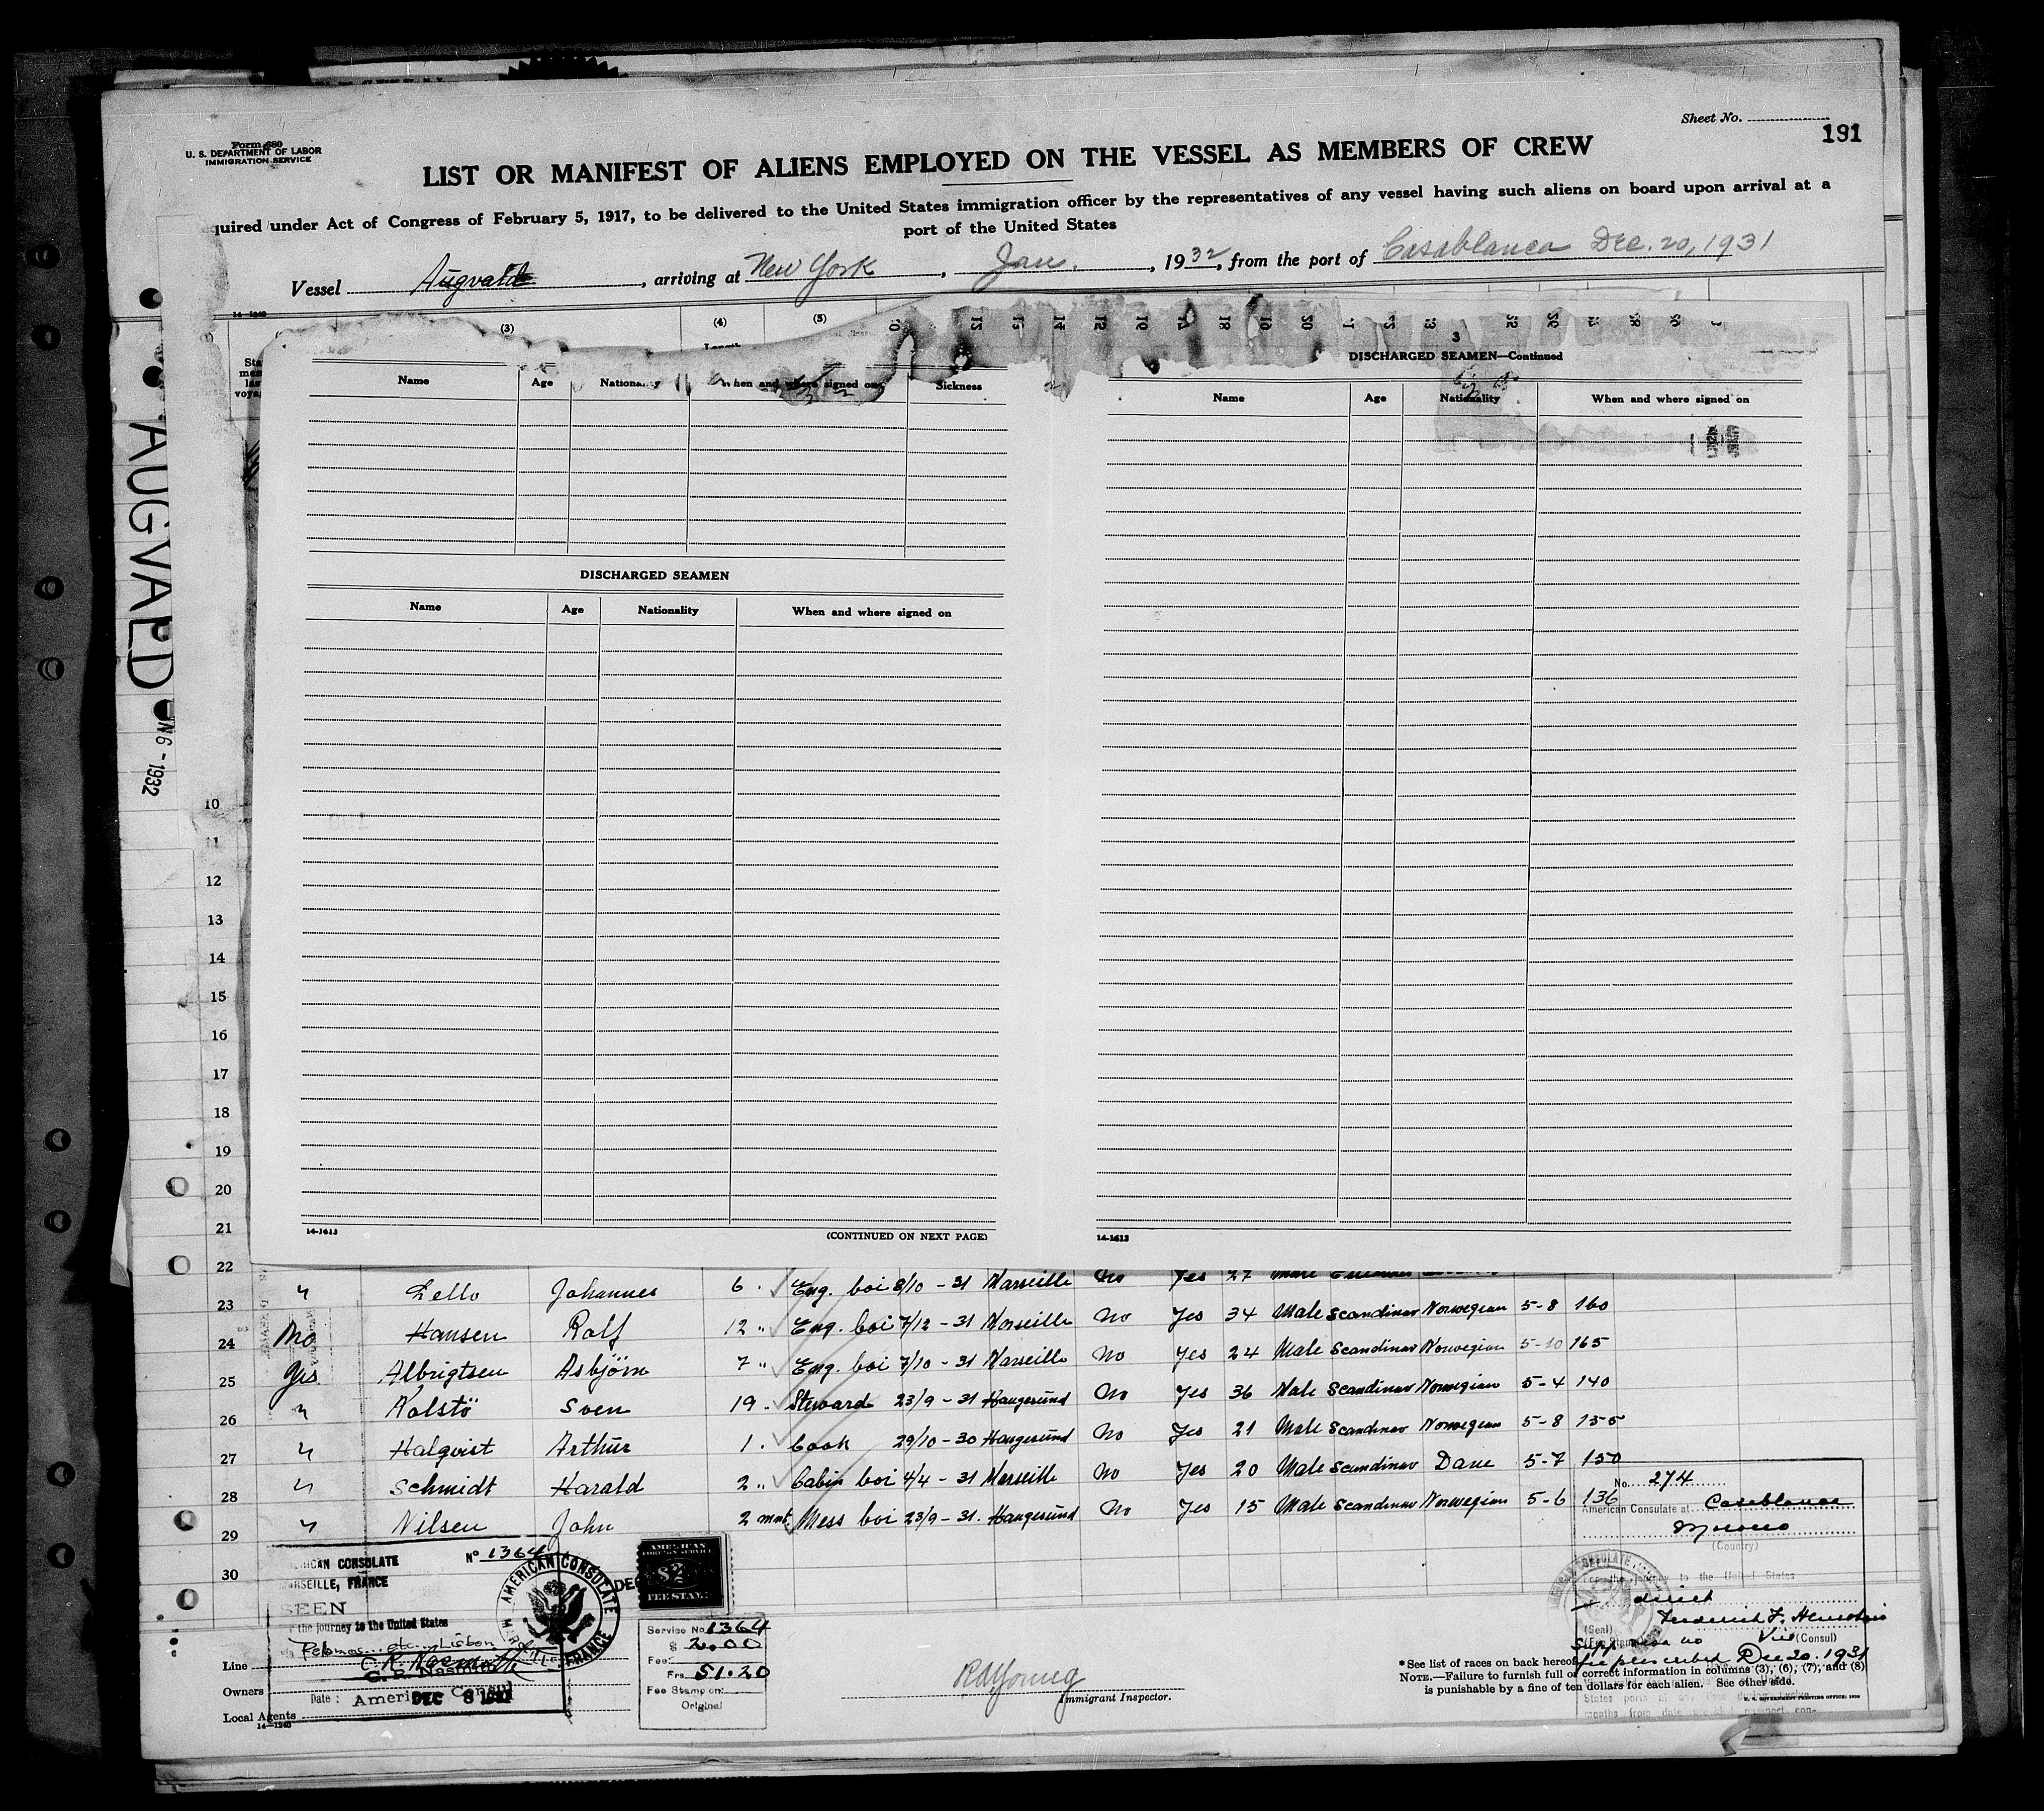 Form 680
U. S. DEPARTMENT OF LABOR
IMMIGRATION SERVICE
Sheet No.
191
LIST OR MANIFEST OF ALIENS EMPLOYED ON THE VESSEL AS MEMBERS OF CREW
quired under Act of Congress of February 5, 1917, to be delivered to the United States immigration officer by the representatives of any vessel having such aliens on board upon arrival at a
port of the United States
Vessel Augvald, arriving at New York, Jan., 1932, from the port of Casablanca Dec. 20, 1931
14-1240
(3) (4) (5)
AUGVALD
1932
3
DISCHARGED SEAMEN—Continued
Name Age Nationality When and where signed on Sickness
Name Age Nationality When and where signed on
DISCHARGED SEAMEN
Name Age Nationality When and where signed on
10
11
12
13
14
15
16
17
18
19
20
21
14-1613
(CONTINUED ON NEXT PAGE)
14-1613
22
23 " Lello Johannes 6 Eng. boi 8/10 - 31 Marseille No Yes 27
24 No Hansen Rolf 12 " Eng. boi 7/12 - 31 Marseille No Yes 34 Male Scandinav Norwegian 5-8 160
25 Yes Albrigtsen Asbjörn 7 " Eng. boi 7/10 - 31 Marseille No Yes 24 Male Scandinav Norwegian 5-10 165
26 " Kolstö Sven 19 Steward 23/9 - 31 Haugesund No Yes 36 Male Scandinav Norwegian 5-4 140
27 " Halqvist Arthur 1 Cook 29/10 - 30 Haugesund No Yes 21 Male Scandinav Norwegian 5-8 155
28 " Schmidt Harald 2 " Cabin boi 4/4 - 31 Marseille No Yes 20 Male Scandinav Dane 5-7 150
29 " Nilsen John 2 mnt. Mess boi 23/9 - 31. Haugesund No Yes 15 Male Scandinav Norwegian 5-6 136
30
AMERICAN CONSULATE No 1364
MARSEILLE, FRANCE
SEEN
the journey to the United States
Lisbon
Date: American Consul
DEC 8 1931
AMERICAN CONSULATE
FRANCE
AMERICAN
FOREIGN SERVICE
$2
FEE STAMP
Service No. 1364
$ 2.00
Fee:
Frs. 51.20
Fee Stamp on:
Original
Line
Owners
Local Agents
14-1240
Immigrant Inspector.
No. 274
American Consulate at Casablanca
Morocco
(Country)
For the journey to the United States
direct
(Seal)
Vice (Consul)
fee prescribed Dec 20. 1931
*See list of races on back hereof.
NOTE.—Failure to furnish full or correct information in columns (3), (6), (7), and (8)
is punishable by a fine of ten dollars for each alien. See other side.
U. S. GOVERNMENT PRINTING OFFICE: 1930
months from date